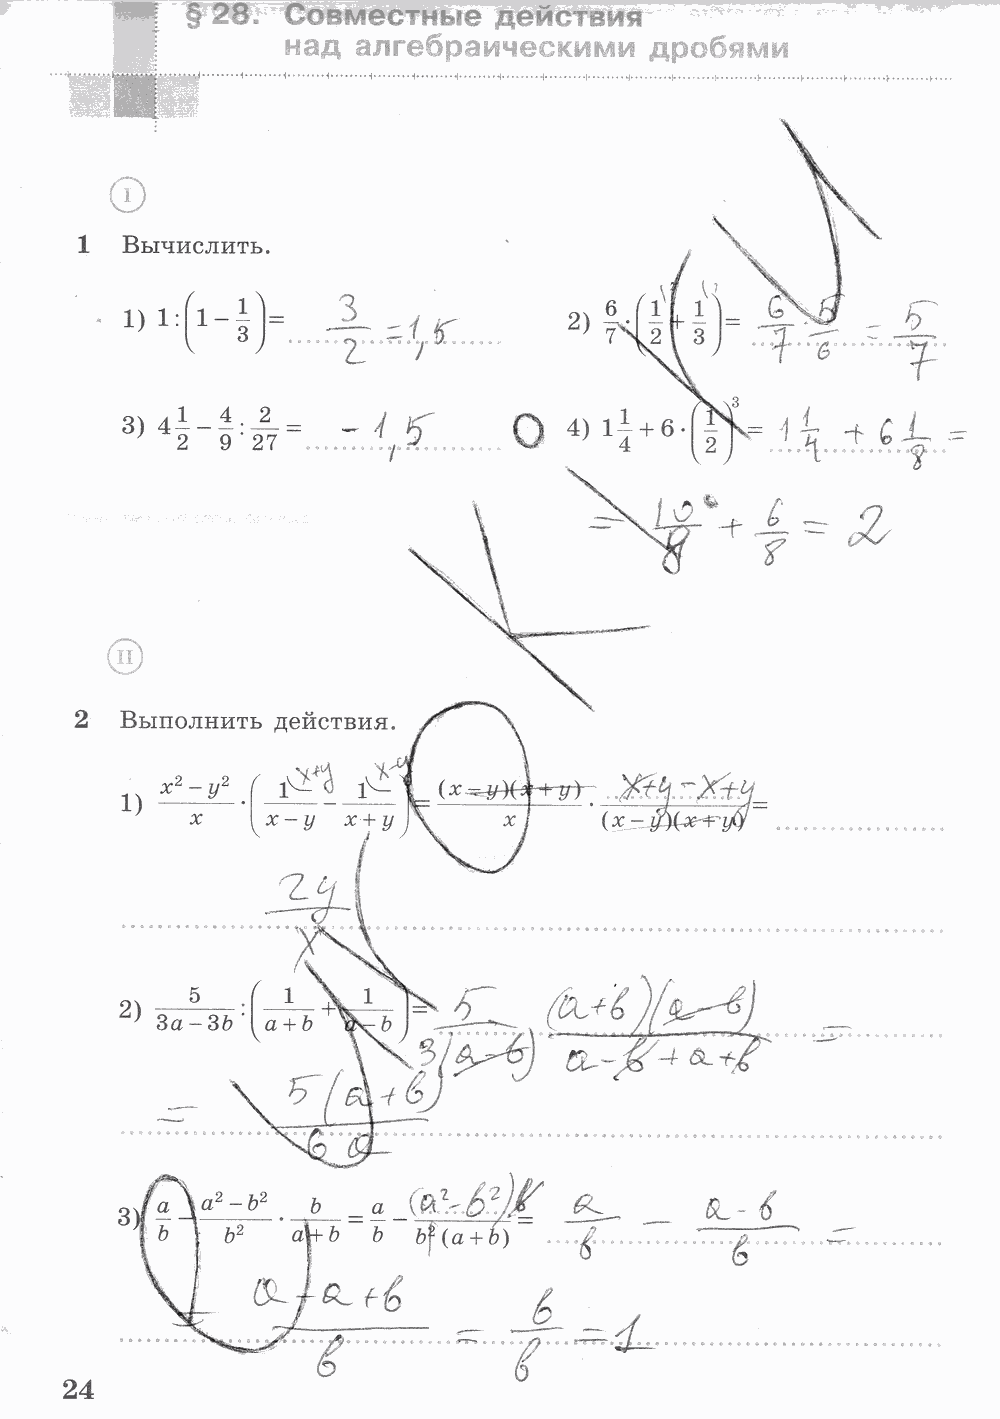 § 28. Совместные действия
над алгебраическими дробями
I
1 Вычислить.
1) 1 : (1 − 1/3) = 3/2 = 1,5
2) 6/7 · (1/2 + 1/3) = 6/7 · 5/6 = 5/7
3) 4 1/2 − 4/9 : 2/27 = − 1,5
4) 1 1/4 + 6 · (1/2)³ = 1 1/4 + 6 1/8 =
= 10/8 + 6/8 = 2
II
2 Выполнить действия.
1) (x² − y²)/x · (1/(x − y) − 1/(x + y)) = (x − y)(x + y)/x · (x+y − x+y)/((x − y)(x + y)) =
2y/x
2) 5/(3a − 3b) : (1/(a + b) + 1/(a − b)) = 5/(3(a − b)) (a+b)(a−b)/(a − b + a + b) =
= 5(a + b)/6a
3) a/b − (a² − b²)/b² · b/(a + b) = a/b − (a² − b²)b/(b²(a + b)) = a/b − (a − b)/b =
= (a − a + b)/b = b/b = 1
24